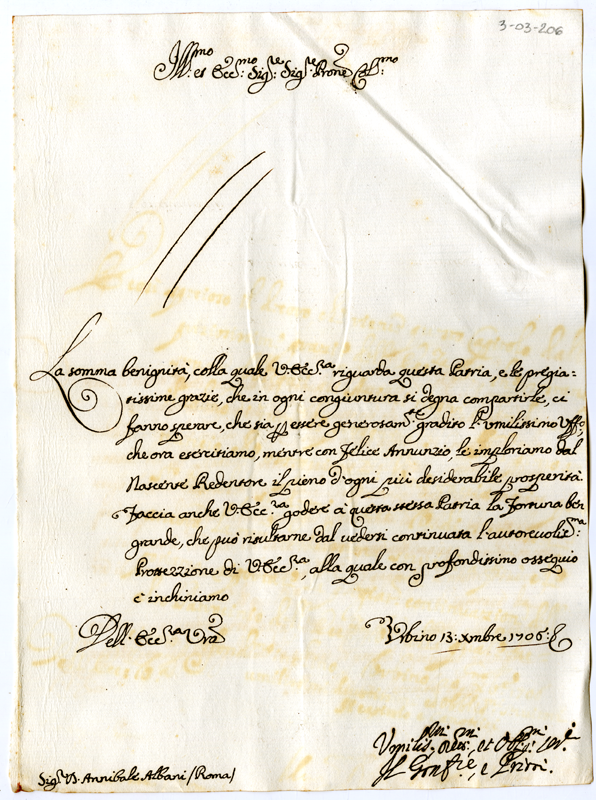 3-03-206
Ill.mo et Ecc.mo Sig.re Sig.re Prone Col.mo
La somma benignità, colla quale V. Ecc.za riguarda questa Patria, e le pregia-
tissime grazie, che in ogni congiuntura si degna compartirle, ci
fanno sperare, che sia p essere generosam.te gradito l'umilissimo Uff.o
che ora esercitiamo, mentre con felice Annunzio, le imploriamo dal
Nascente Redentore il pieno d'ogni più desiderabile prosperità.
Faccia anche V. Ecc.za godere à questa stessa Patria la Fortuna ben
grande, che può risultarne dal vedersi continuata l'autorevoliss.ma
Protezzione di V. Ecc.za, alla quale con profondissimo ossequio
c'inchiniamo
Dell' Ecc.za Vra
Urbino 13: Xmbre 1706:
Umiliss.mi Dev.mi et Obl.mi Ser.i
Il Gonf.re, e Priori.
Sig.r D. Annibale Albani (Roma)